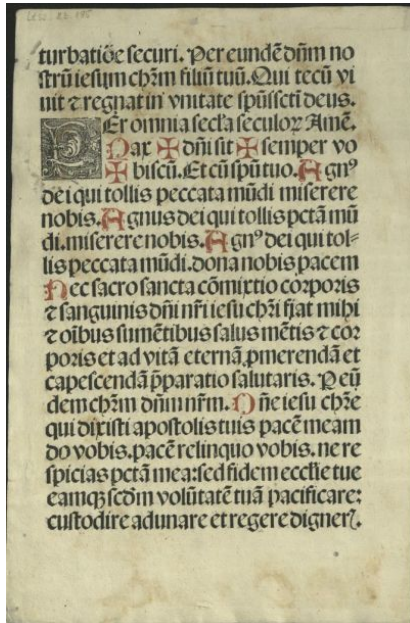 turbatiõe securi. Per eundẽ dñm no
strũ iesum chr̃m filiũ tuũ. Qui tecũ vi
uit ⁊ regnat in vnitate spũssctĩ deus.
PEr omnia sec̃la seculoꝝ Amẽ.
Pax ✠ dñi sit ✠ semper vo
✠ biscũ. Et cũ spũ tuo. Agnꝰ
dei qui tollis peccata mũdi miserere
nobis. Agnus dei qui tollis pctã mũ
di. miserere nobis. Agnꝰ dei qui tol-
lis peccata mũdi. dona nobis pacem
Hec sacrosancta cõmixtio corporis
⁊ sanguinis dñi nr̃i iesu chr̃i fiat mihi
⁊ oĩbus sumẽtibus salus mẽtis ⁊ cor
poris et ad vitã eternã ꝓmerendã et
capescendã p̃paratio salutaris. P eũ
dem chr̃m dñm nr̃m. Dñe iesu chr̃e
qui dixisti apostolis tuis pacẽ meam
do vobis. pacẽ relinquo vobis. ne re
spicias pctã mea: sed fidem eccl̃ie tue
eamqꝫ scd̃m volũtatẽ tuã pacificare:
custodire adunare et regere digneꝝ.